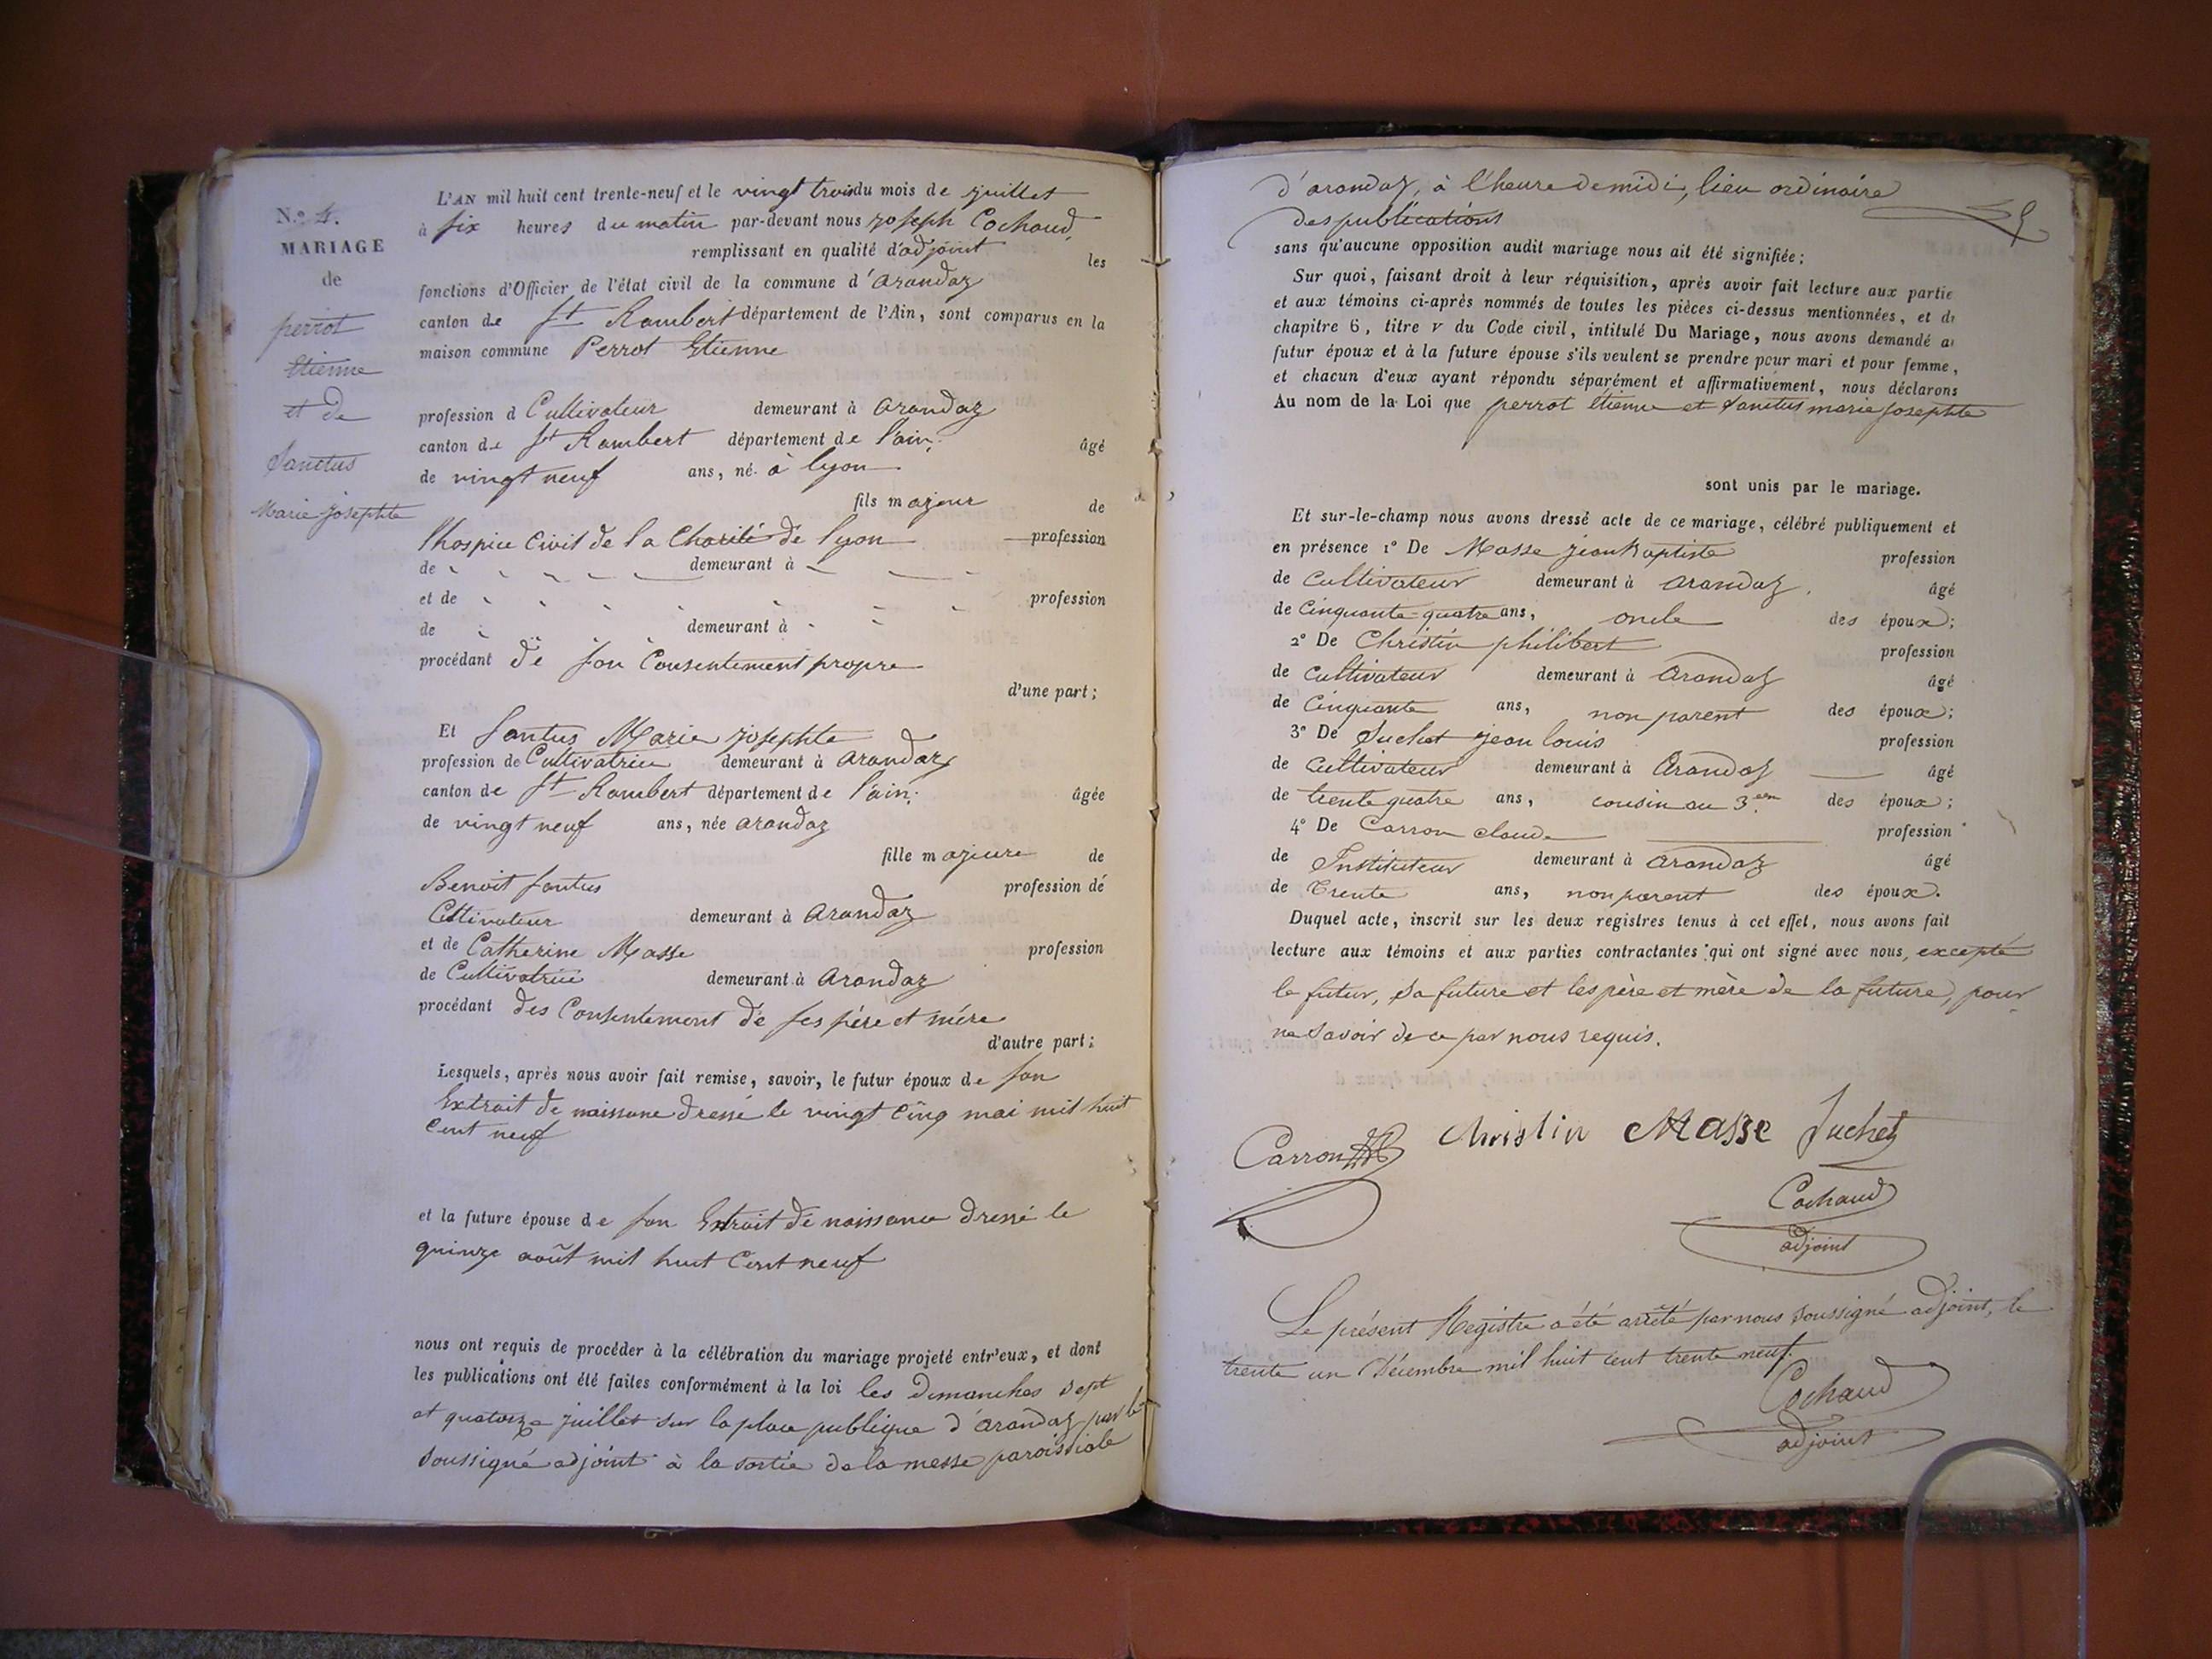 N.º 4.
MARIAGE
de
perrot
Etienne
et de
Sanctus
Marie Josephte
L'AN mil huit cent trente-neuf et le vingt trois du mois de juillet
à six heures du matin par-devant nous Joseph Cochaud,
remplissant en qualité d'adjoint les
fonctions d'Officier de l'état civil de la commune d'arandaz
canton de St Rambert département de l'Ain, sont comparus en la
maison commune Perrot Etienne
profession d Cultivateur demeurant à arandaz
canton de St Rambert département de l'ain; âgé
de vingt neuf ans, né à lyon
fils majeur de
l'hospice Civil de la Charité de lyon profession
de demeurant à
et de profession
de demeurant à
procédant de son Consentement propre
d'une part;
Et Santus Marie josephte
profession de Cultivatrice demeurant à arandaz
canton de St Rambert département de l'ain; âgée
de vingt neuf ans, née arandaz
fille majeure de
Benoit Santus profession de
Cltivateur demeurant à arandaz
et de Catherine Masse profession
de Cultivatrice demeurant à arandaz
procédant des Consentement de ses père et mère
d'autre part;
Lesquels, après nous avoir fait remise, savoir, le futur époux de son
Extrait de naissance dressé le vingt cinq mai mil huit
cent neuf
et la future épouse de son Extrait de naissance dressé le
quinze août mil huit Cent neuf
nous ont requis de procéder à la célébration du mariage projeté entr'eux, et dont
les publications ont été faites conformément à la loi les Dimanches sept
et quatorze juillet sur la place publique d'arandaz par le
soussigné adjoint à la sortie de la messe paroissiale
d'arandaz, à l'heure de midi, lieu ordinaire
des publications
sans qu'aucune opposition audit mariage nous ait été signifiée;
Sur quoi, faisant droit à leur réquisition, après avoir fait lecture aux partie
et aux témoins ci-après nommés de toutes les pièces ci-dessus mentionnées, et du
chapitre 6, titre V du Code civil, intitulé Du Mariage, nous avons demandé au
futur époux et à la future épouse s'ils veulent se prendre pour mari et pour femme,
et chacun d'eux ayant répondu séparément et affirmativement, nous déclarons
Au nom de la Loi que perrot étienne et Sanctus marie josephte
sont unis par le mariage.
Et sur-le-champ nous avons dressé acte de ce mariage, célébré publiquement et
en présence 1º De Masse jean Baptiste profession
de cultivateur demeurant à arandaz, âgé
de Cinquante-quatre ans, oncle des époux;
2º De Christin philibert profession
de cultivateur demeurant à arandaz âgé
de Cinquante ans, non parent des époux;
3º De Suchet jean louis profession
de cultivateur demeurant à arandaz âgé
de trente quatre ans, cousin au 3em des époux;
4º De Carron claude profession
de Instituteur demeurant à arandaz âgé
de Trente ans, non parent des époux.
Duquel acte, inscrit sur les deux registres tenus à cet effet, nous avons fait
lecture aux témoins et aux parties contractantes qui ont signé avec nous, excepté
le futur, la future et les père et mère de la future, pour
ne savoir de ce par nous requis.
Carron Christin Masse Suchet
Cochaud
adjoint
Le présent Registre a été arrêté par nous soussigné adjoint, le
trente un Décembre mil huit cent trente neuf.
Cochaud
adjoint